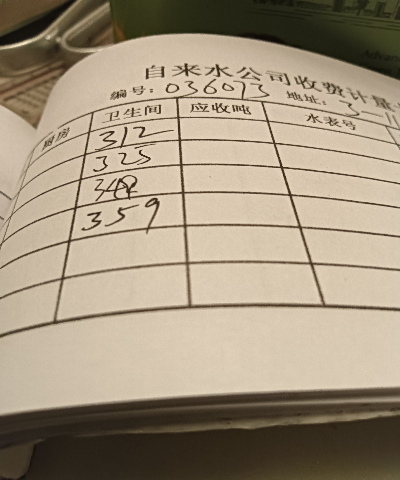 自来水公司收费计量
编号: 036013 地址: 3-11
厨房 卫生间 应收吨 水表号
312
325
359